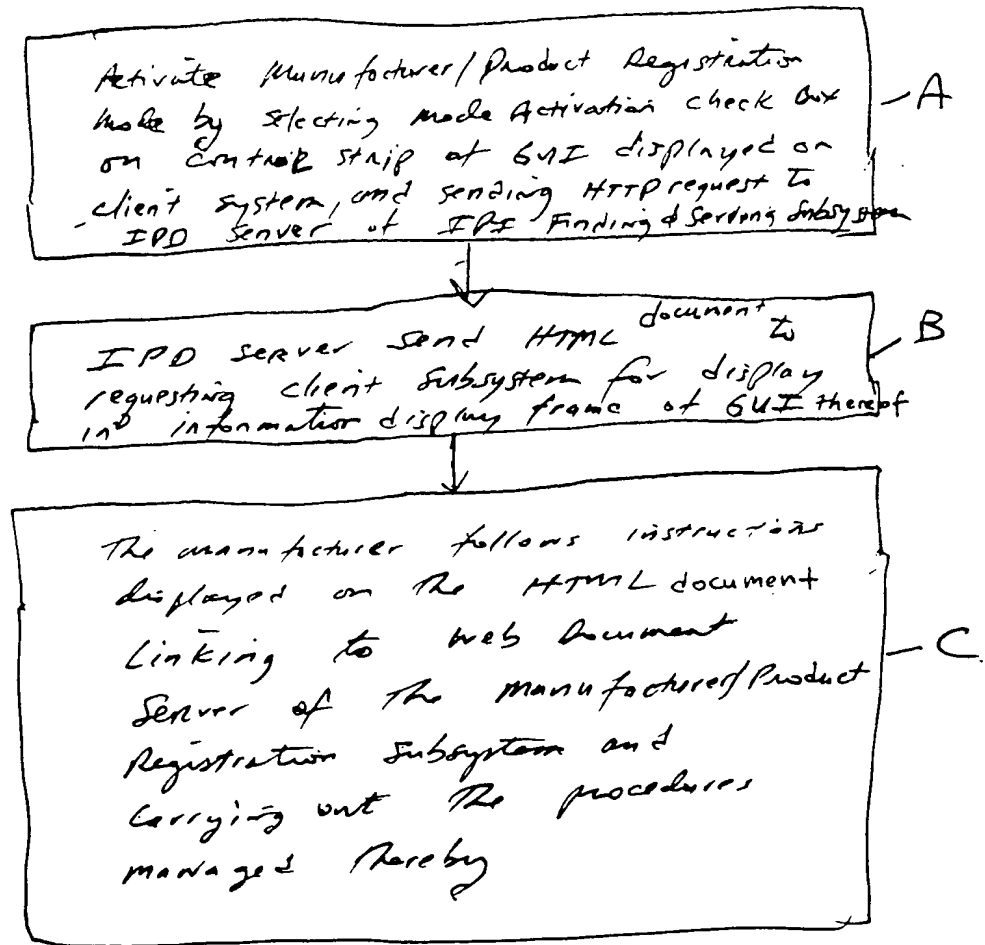 Activate Manufacturer/Product Registration
Mode by Selecting Mode Activation check Box
on Control strip of GUI displayed on
client system, and sending HTTP request to
IPD server of IPI Finding & Serving Subsystem
A
IPD server send HTML document to
requesting client subsystem for display
in information display frame of GUI thereof
B
The manufacturer follows instructions
displayed on the HTML document
Linking to Web Document
Server of the Manufacturer/Product
Registration Subsystem and
Carrying out the procedures
managed thereby
C